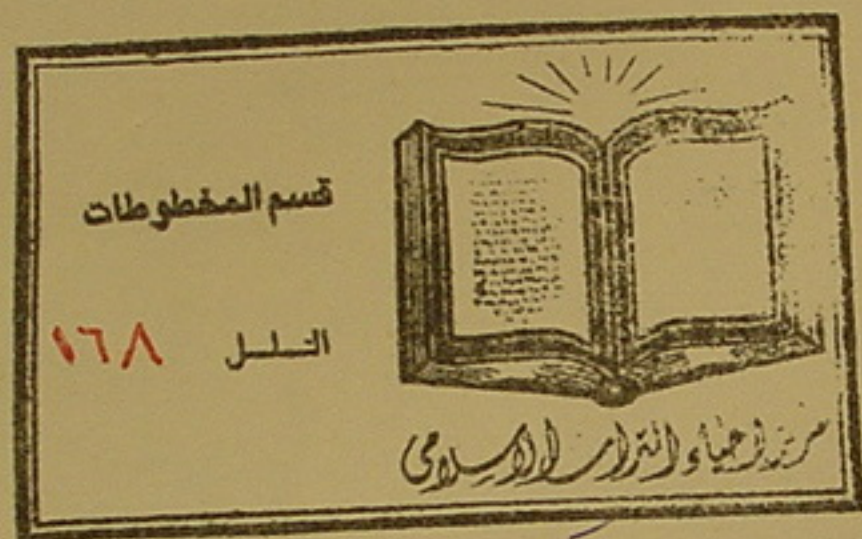 قسم المخطوطات
التسلسل ١٦٨
مركز احياء التراث الاسلامي